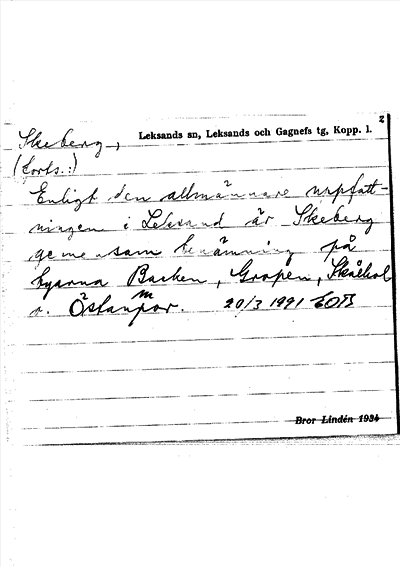 2
Skeberg, Leksands sn, Leksands och Gagnefs tg, Kopp. l.
(forts.:)
Enligt den allmännare uppfatt-
ningen i Leksand är Skeberg
gemensam benämning på
byarna Backen, Gropen, Skålhol
o. Östanmor. 20/3 1991 EOB
Bror Lindén 1934